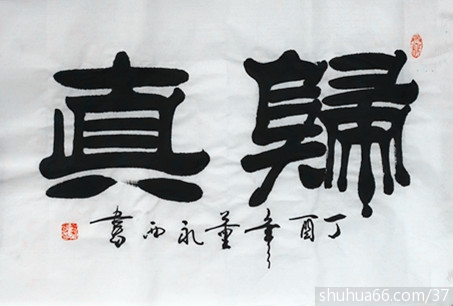 歸真
丁酉年董永西書
shuhua66.com/37